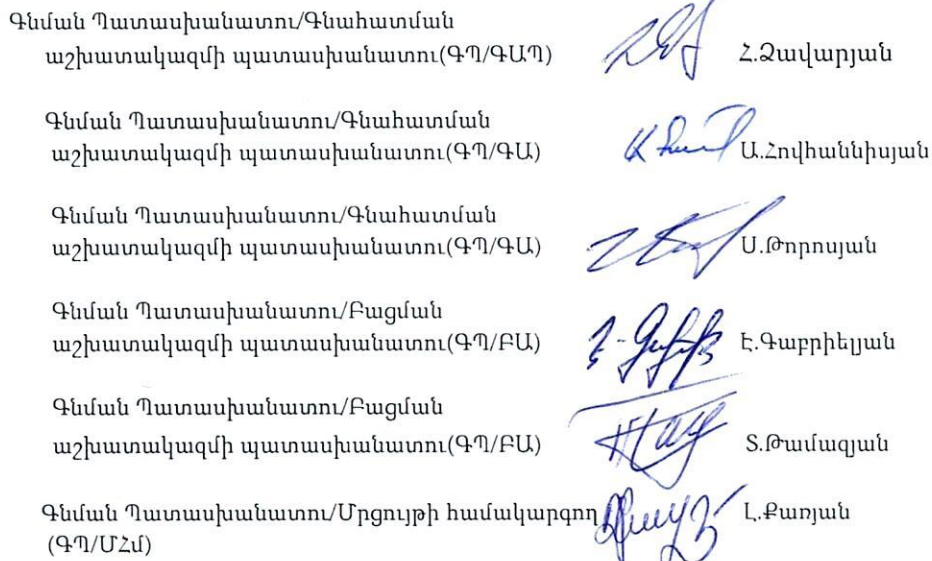 Գնման Պատասխանատու/Գնահատման
աշխատակազմի պատասխանատու(ԳՊ/ԳԱՊ) Հ.Զավարյան
Գնման Պատասխանատու/Գնահատման
աշխատակազմի պատասխանատու(ԳՊ/ԳԱ) Ա.Հովհաննիսյան
Գնման Պատասխանատու/Գնահատման
աշխատակազմի պատասխանատու(ԳՊ/ԳԱ) Ս.Թորոսյան
Գնման Պատասխանատու/Բացման
աշխատակազմի պատասխանատու(ԳՊ/ԲԱ) Է.Գաբրիելյան
Գնման Պատասխանատու/Բացման
աշխատակազմի պատասխանատու(ԳՊ/ԲԱ) Տ.Թամազյան
Գնման Պատասխանատու/Մրցույթի համակարգող Լ.Քառյան
(ԳՊ/ՄՀմ)